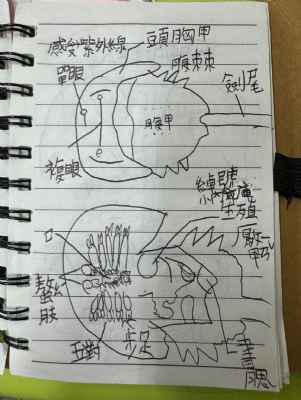 感受紫外線
單眼
頭胸甲
腹棘
劍尾
腹甲
複眼
口
螯肢
五對
步足
生殖
書
腮